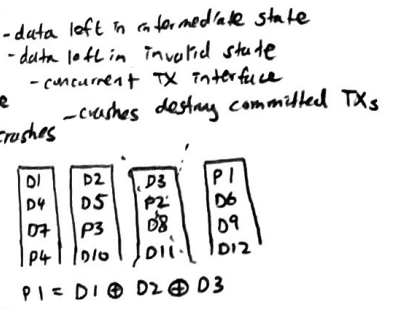 - data left in intermediate state
- data left in invalid state
- concurrent TX interface
e
- crashes destroy committed TXs
crashes
D1 D2 D3 P1
D4 D5 P2 D6
D7 P3 D8 D9
P4 D10 D11 D12
P1 = D1 ⊕ D2 ⊕ D3